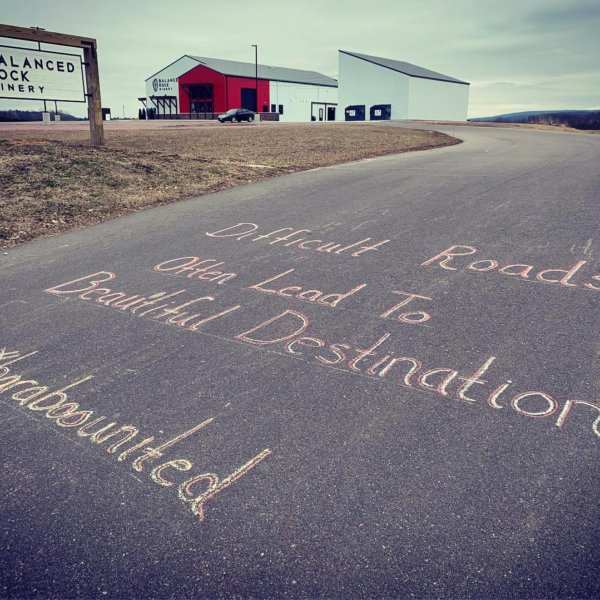 BALANCED
ROCK
WINERY
BALANCED
ROCK
WINERY
Difficult Roads
Often Lead To
Beautiful Destination
#barabosunited